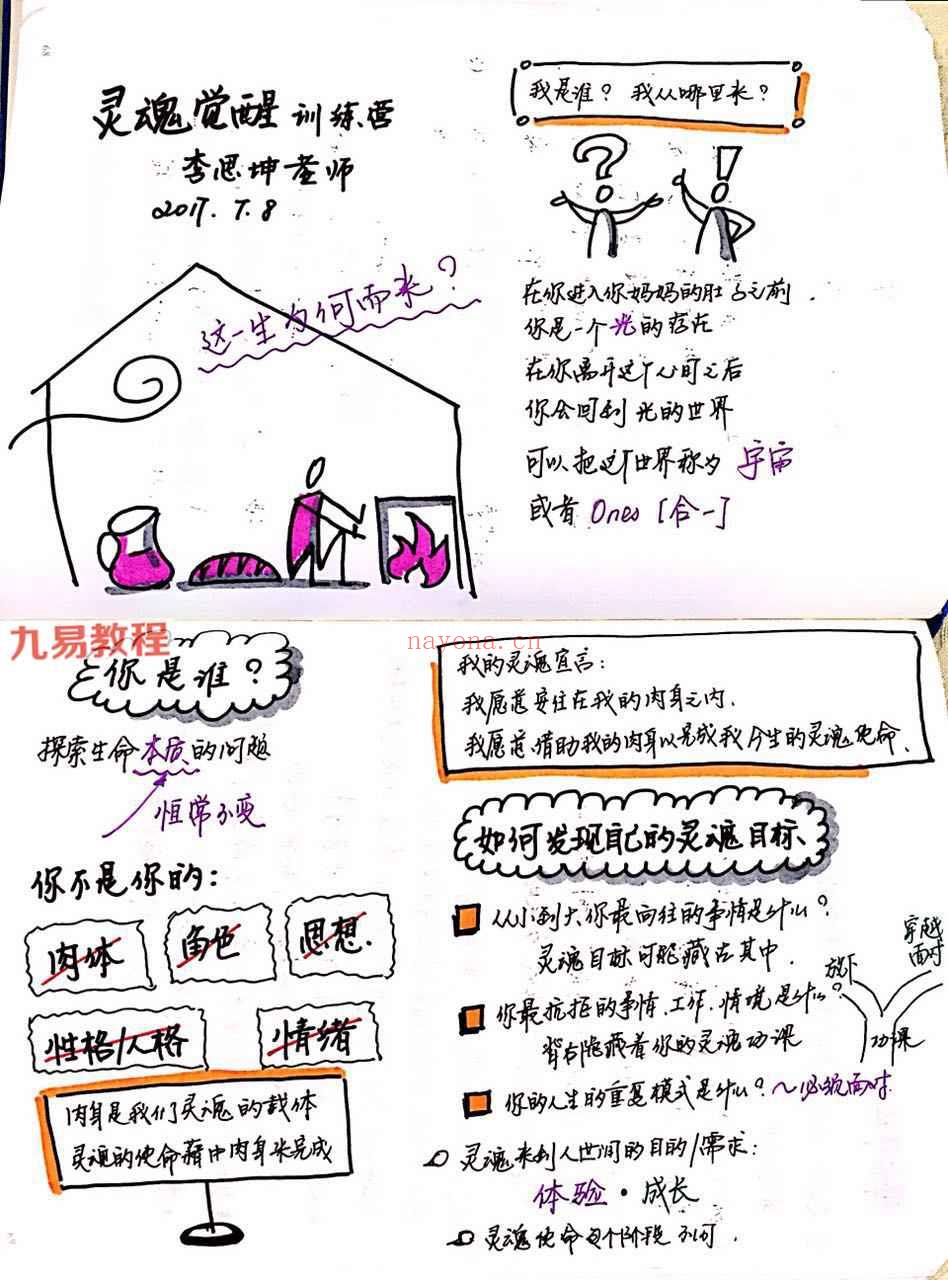 灵魂觉醒训练营
李思坤老师
2017.7.8
这一生为何而来?
我是谁? 我从哪里来?
在你进入你妈妈的肚子之前.
你是一个光的存在
在你离开这个人间之后
你会回到光的世界
可以把这个世界称为 宇宙
或者 Ones [合一]
九易教程
nayona.cn
你是谁?
探索生命本质的问题
恒常不变
你不是你的:
肉体
角色
思想.
性格/人格
情绪
肉身是我们灵魂的载体
灵魂的使命藉由肉身来完成
我的灵魂宣言:
我愿意安住在我的肉身之内.
我愿意借助我的肉身以完成我今生的灵魂使命.
如何发现自己的灵魂目标、
从小到大你最向往的事情是什么?
灵魂目标可能藏在其中.
你最抗拒的事情.工作.情境是什么?
背后隐藏着你的灵魂功课
放下
穿越
面对
功课
你的人生的重复模式是什么? ～必须面对
灵魂来到人世间的目的/需求:
体验·成长
灵魂使命每个阶段不同.